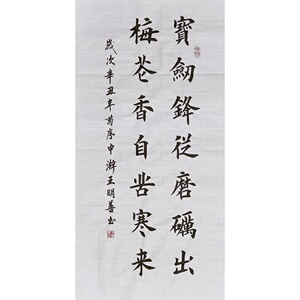 寶劒鋒從磨礪出
梅花香自苦寒来
歲次辛丑年菊序中澣王明善书